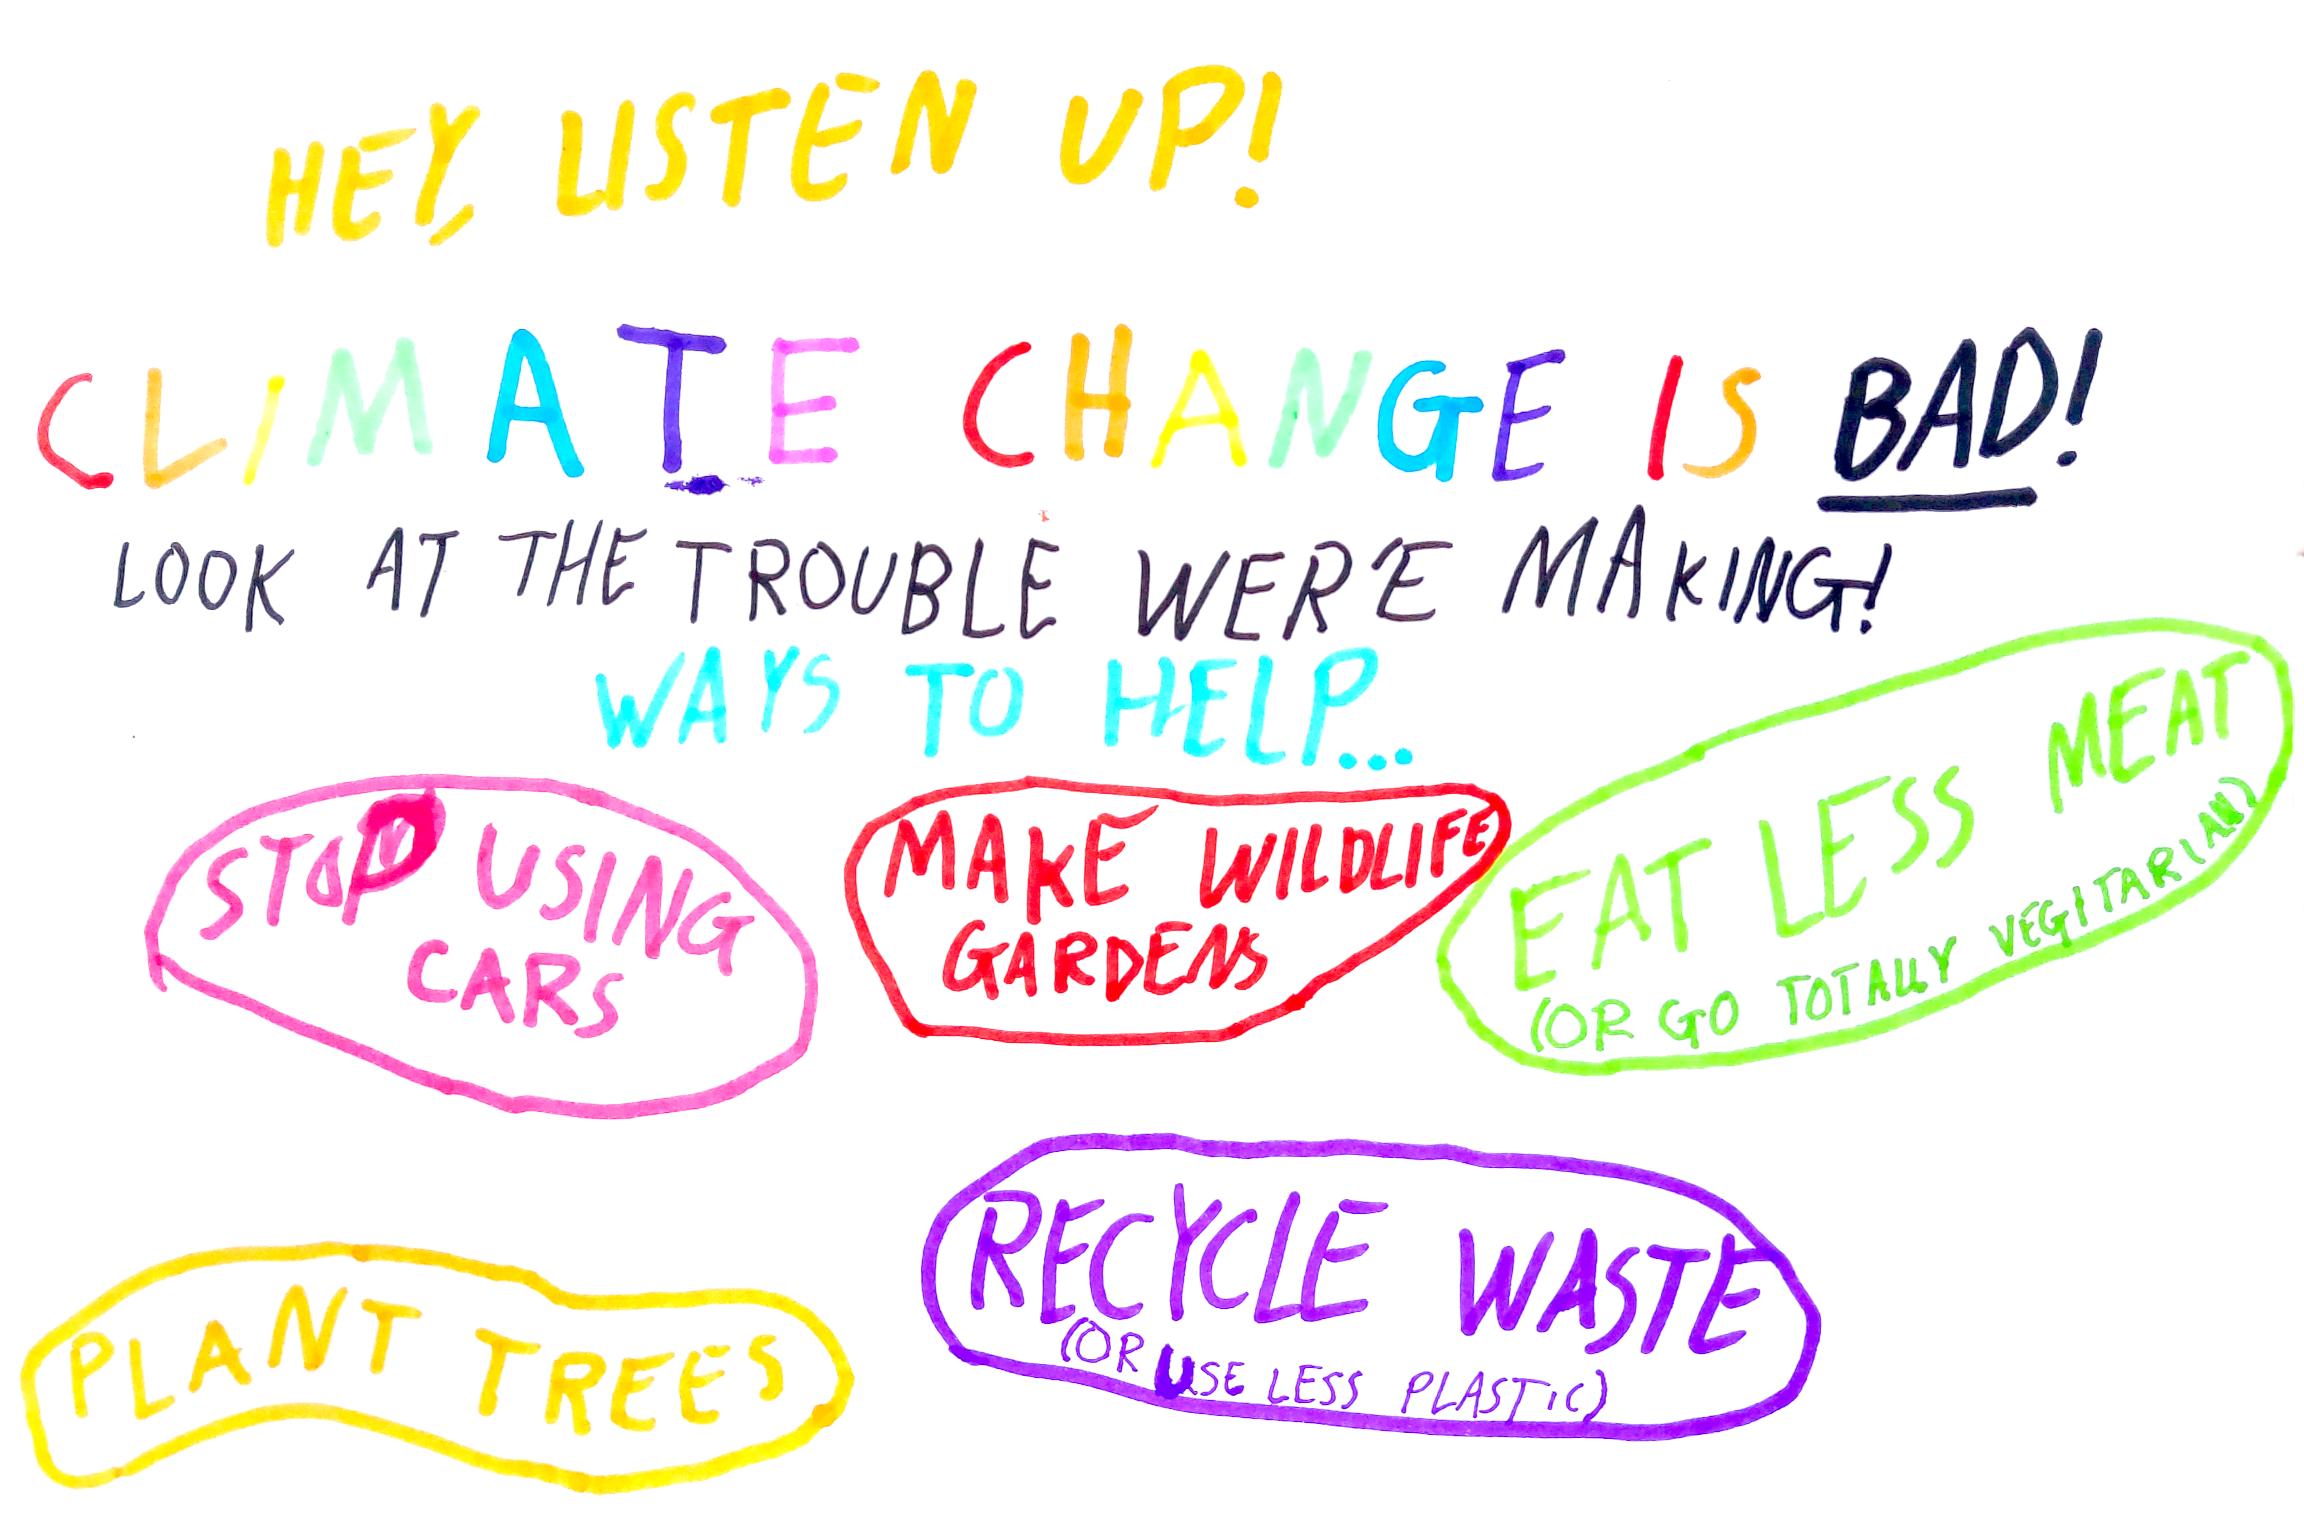 HEY, LISTEN UP!
CLIMATE CHANGE IS BAD!
LOOK AT THE TROUBLE WER'E MAKING!
WAYS TO HELP...
STOP USING
CARS
MAKE WILDLIFE
GARDENS
EAT LESS MEAT
(OR GO TOTALLY VEGITARIAN)
PLANT TREES
RECYCLE WASTE
(OR USE LESS PLASTIC)